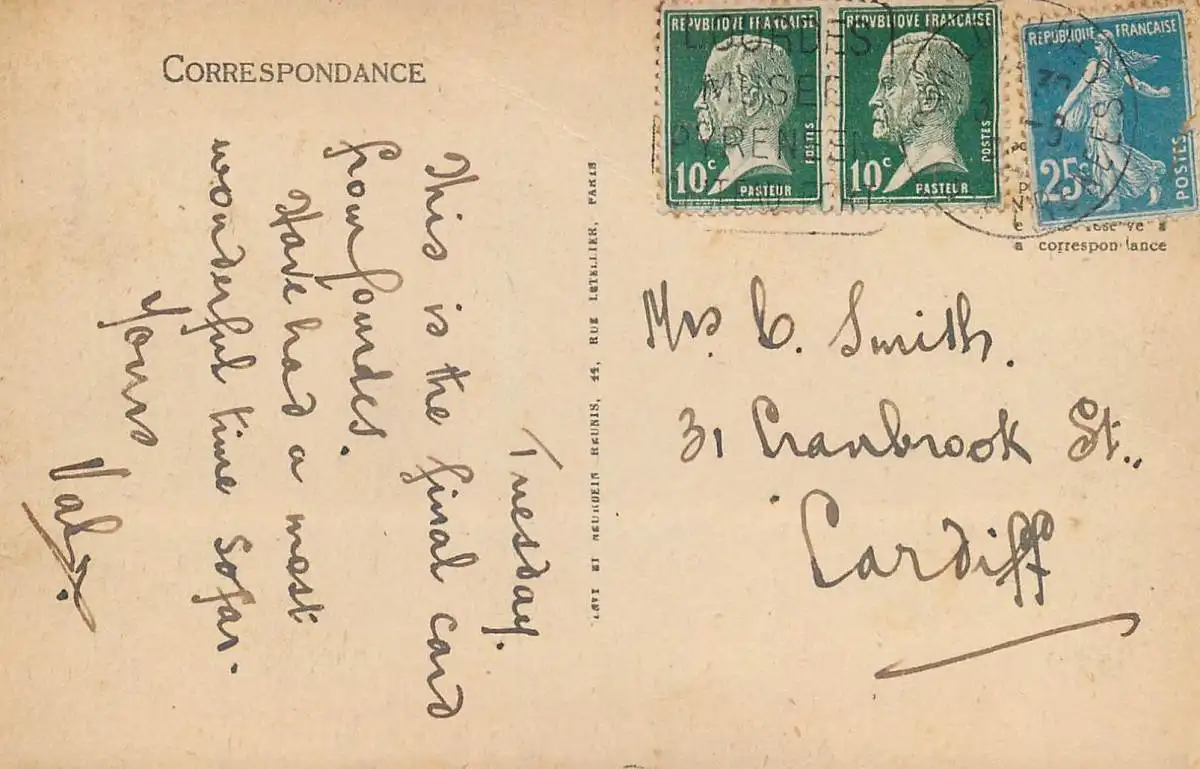 CORRESPONDANCE
Tuesday.
This is the final card
from Lourdes.
Have had a most
wonderful time sofar.
Yours
LEVY ET NEURDEIN REUNIS, 44, RUE LETELLIER, PARIS
REPVBLIQVE FRANÇAISE
10c
POSTES
PASTEUR
REPVBLIQVE FRANÇAISE
10c
POSTES
PASTEUR
REPUBLIQUE FRANÇAISE
25c
POSTES
LOURDES
MUSEE
PYRENEEN
réservé à
a correspondance
Mrs. C. Smith.
31 Cranbrook St.,
Cardiff